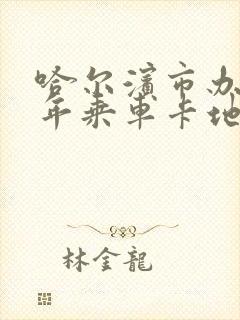 哈尔滨市办
年乘车卡地
林金龍